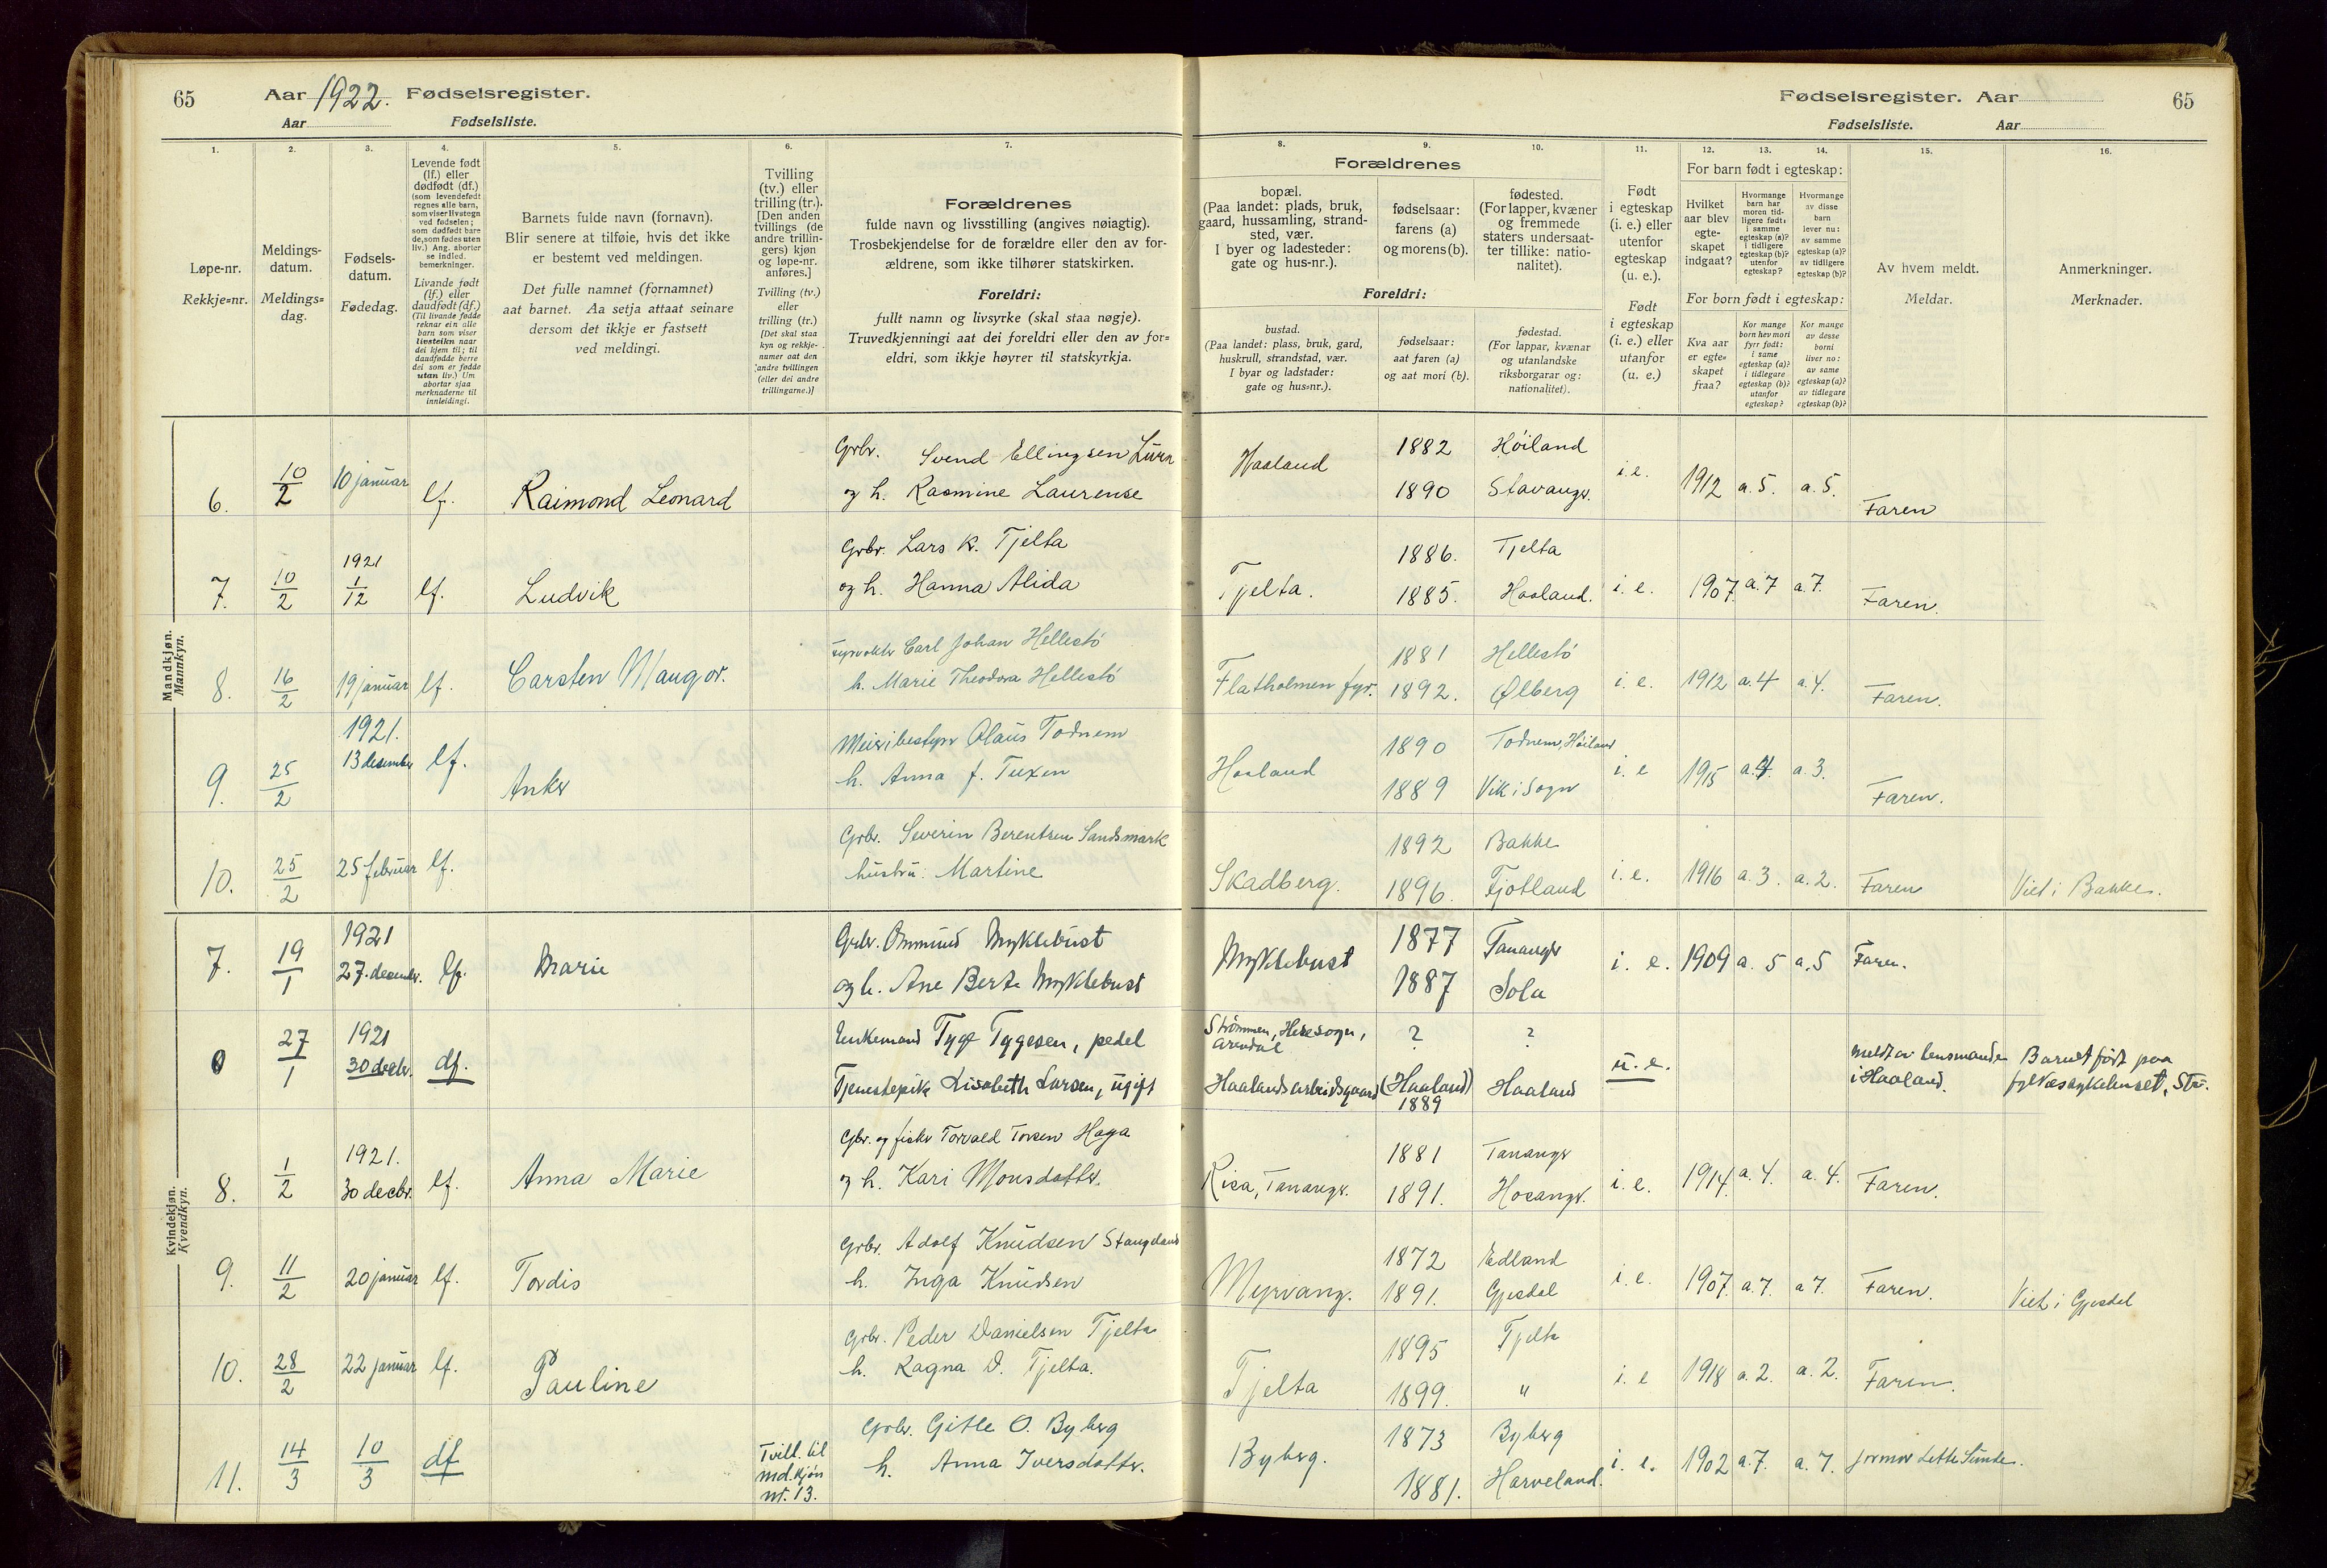 65
Aar 1922. Fødselsregister.
Aar
Fødselsliste.
1.
2.
3.
4.
5.
6.
7.
Løpe-nr.
Rekkje-nr.
Meldings-
datum.
Meldings-
dag.
Fødsels-
datum.
Fødedag.
Levende født
(lf.) eller
dødfødt (df.)
(som levendefødt
regnes alle barn,
som viser livstegn
ved fødselen;
som dødfødt bare
de, som fødes uten
liv.) Ang. aborter
se indled.
bemerkninger.
Livande født
(lf.) eller
daudfødt (df.)
(Til livande fødde
reknar ein alle
barn som viser
livsteikn naar
dei kjem til; til
daudfødde berre
dei som er fødde
utan liv.) Um
abortar sjaa
merknaderne til
innleidingi.
Barnets fulde navn (fornavn).
Blir senere at tilføie, hvis det ikke
er bestemt ved meldingen.
Det fulle namnet (fornamnet)
aat barnet. Aa setja attaat seinare
dersom det ikkje er fastsett
ved meldingi.
Tvilling
(tv.) eller
trilling (tr.).
[Den anden
tvillings (de
andre trillin-
gers) kjøn
og løpe-nr.
anføres.]
Tvilling (tv.)
eller
trilling (tr.)
[Det skal staa
kyn og rekkje-
numer aat den
andre tvillingen
(eller dei andre
trillingarne.)]
Forældrenes
fulde navn og livsstilling (angives nøiagtig).
Trosbekjendelse for de forældre eller den av for-
ældrene, som ikke tilhører statskirken.
Foreldri:
fullt namn og livsyrke (skal staa nøgje).
Truvedkjenningi aat dei foreldri eller den av for-
eldri, som ikkje høyrer til statskyrkja.
Mandkjøn.
Mannkyn.
6. 10/2 10 januar lf. Raimond Leonard Grbr. Svend Ellingsen Lura
og h. Rasmine Laurense
7. 10/2 1921 1/12 lf. Ludvik Grbr. Lars K. Tjelta
og h. Hanna Alida
8. 16/2 19 januar lf. Carsten Mangor. Carl Johan Hellestö
h. Marie Theodora Hellestö
9. 25/2 1921. 13 desember lf. Anker Meieribestyr Olaus Todnem
h. Anna J. Tuxen
10. 25/2 25 februar lf. Grbr. Severin Berentsen Sandsmark
hustru: Martine
Kvindekjøn.
Kvendkyn.
7. 19/1 1921 27. decembr. lf. Marie Grbr. Ommund Myklebust
og h. Ane Berte Myklebust
0 27/1 1921 30 decbr. df. Enkemand Tyge Tygesen, pedel
Tjenestepike Lisabeth Larsen, ugift
8. 1/2 1921. 30 decbr. lf. Anna Marie Gbr. og fisker Torvald Torsen Haga
og h. Kari Monsdatter.
9. 11/2 20 januar lf. Tordis Grbr. Adolf Knudsen Stangeland
h. Inga Knudsen
10. 28/2 22 januar lf. Pauline Grbr. Peder Danielsen Tjelta
h. Ragna D. Tjelta.
11. 14/3 10/3 df Tvill. til
md.kjøn
nr. 13.
Grbr. Gitle O. Byberg
h. Anna Iversdatter.
Fødselsregister. Aar
65
Fødselsliste.
Aar
8.
9.
10.
11.
12.
13.
14.
15.
16.
Forældrenes
bopæl.
(Paa landet: plads, bruk,
gaard, hussamling, strand-
sted, vær.
I byer og ladesteder:
gate og hus-nr.).
fødselsaar:
farens (a)
og morens (b).
fødested.
(For lapper, kvæner
og fremmede
staters undersaat-
ter tillike: natio-
nalitet).
Foreldri:
bustad.
(Paa landet: plass, bruk, gard,
huskrull, strandstad, vær.
I byar og ladstader:
gate og hus-nr.).
fødselsaar:
aat faren (a)
og aat mori (b).
fødestad.
(For lappar, kvænar
og utanlandske
riksborgarar og:
nationalitet).
Født
i egteskap
(i. e.) eller
utenfor
egteskap
(u. e.).
Født
i egteskap
(i. e.) eller
utanfor
(u. e.)
For barn født i egteskap:
Hvilket
aar blev
egte-
skapet
indgaat?
Hvormange
barn har
moren tid-
ligere født:
i samme
egteskap (a)?
i tidligere
egteskap (b)?
utenfor
egteskap?
Hvormange
av disse
barn
lever nu:
av samme
egteskap (a)?
av tidligere
egteskap (b)?
For born født i egteskap:
Kva aar
er egte-
skapet
fraa?
Kor mange
born hev mori
fyrr født:
i same
egteskap (a)?
i tidlegare
egteskap (b)?
utanfor
egteskap?
Kor mange
av desse
borni
liver no:
av same
egteskap (a)?
av tidlegare
egteskap (b)?
Av hvem meldt.
Meldar.
Anmerkninger.
Merknader.
Haaland 1882 Höiland i. e. 1912 a. 5. a. 5. Faren
1890 Stavanger.
Tjelta. 1886. Tjelta i. e. 1907. a. 7 a 7. Faren.
1885. Haaland.
Flatholmen fyr. 1881 Hellestö i. e. 1912 a. 4 a. 4. Faren.
1892. Ølberg
Haaland 1890 Todnem, Höiland i. e 1915 a. 4. a. 3. Faren.
1889 Vik i Sogn
Skadberg. 1892 Bakke i. e. 1916 a. 3. a. 2. Faren Viet i Bakke.
1896. Fjotland
Myklebust 1877 Tananger i. e. 1909 a. 5 a. 5 Faren.
1887 Sola
Strömmen, Hisesogn,
Arendal ? ?
Haalands arbeidsgaard (Haaland) 1889 Haaland u. e. meldt av lensmanden
i Haaland.
Barnet født paa
fylkessykehuset, Stv.
Risa, Tananger. 1881 Tananger i. e. 1914. a. 4. a. 4. Faren.
1891. Hosanger.
Myrvang. 1872 Edland i. e. 1907. a. 7. a 7. Faren. Viet i Gjesdal
1891. Gjesdal
Tjelta 1895 Tjelta i. e 1918 a. 2. a. 2. Faren.
1899. "
Byberg. 1873 Byberg i. e. 1902 a. 7. a. 7. jormor Sunde.
1881. Harveland.